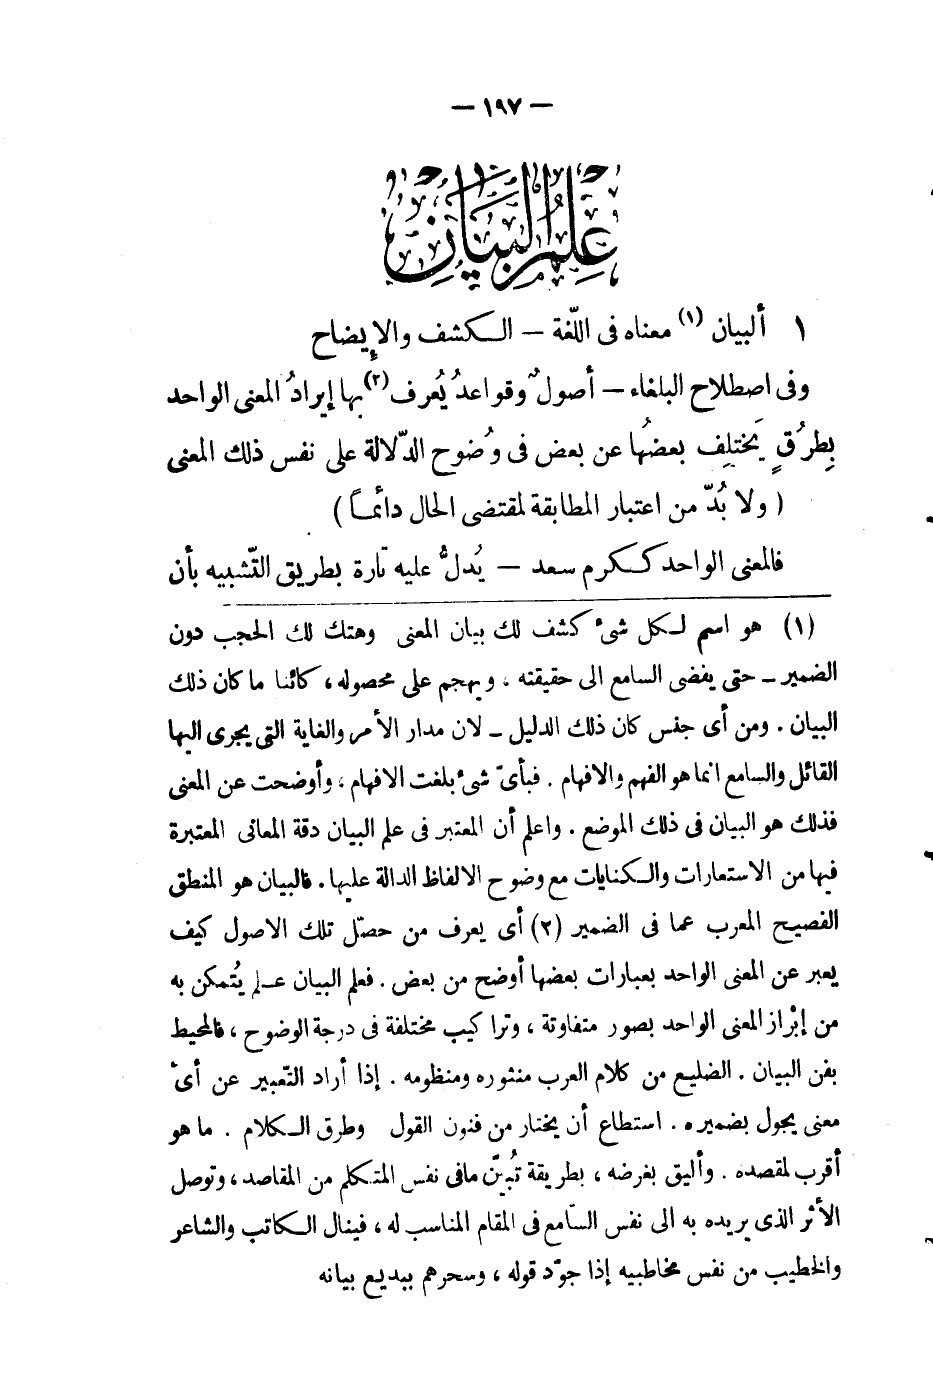 — ١٩٧ —
عِلْمُ الْبَيَانِ
١ ألبيان (١) معناه فى اللّغة — الكشف والإيضاح
وفى اصطلاح البلغاء — أصولٌ وقواعدُ يُعرف (٢) بها إيرادُ المعنى الواحد
بِطرُقٍ يَختلِف بعضُها عن بعض فى وُضوح الدّلالة على نفس ذلك المعنى
( ولا بُدّ من اعتبار المطابقة لمقتضى الحال دائماً )
فالمعنى الواحد ككرم سعد — يُدلُّ عليه تارة بطريق التّشبيه بأن
(١) هو اسم لكل شىء كشف لك بيان المعنى وهتك لك الحجب دون
الضمير — حتى يفضى السامع الى حقيقته ، ويهجم على محصوله ، كائنا ما كان ذلك
البيان . ومن أى جنس كان ذلك الدليل — لان مدار الأمر والغاية التى يجرى اليها
القائل والسامع انما هو الفهم والافهام . فبأىّ شىء بلغت الافهام ، وأوضحت عن المعنى
فذلك هو البيان فى ذلك الموضع . واعلم أن المعتبر فى علم البيان دقة المعانى المعتبرة
فيها من الاستعارات والكنايات مع وضوح الالفاظ الدالة عليها . فالبيان هو المنطق
الفصيح المعرب عما فى الضمير (٢) أى يعرف من حصّل تلك الاصول كيف
يعبر عن المعنى الواحد بعبارات بعضها أوضح من بعض . فعلم البيان علم يُتمكن به
من إبْراز المعنى الواحد بصور متفاوتة ، وتراكيب مختلفة فى درجة الوضوح ، فالمحيط
بفن البيان . الضليع من كلام العرب منثوره ومنظومه . إذا أراد التّعبير عن أىّ
معنى يجول بضميره . استطاع أن يختار من فنون القول وطرق الكلام . ما هو
أقرب لمقصده . وأليق بغرضه ، بطريقة تُبيّن مافى نفس المتكلم من المقاصد ، وتوصل
الأثر الذى يريده به الى نفس السّامع فى المقام المناسب له ، فينال الكاتب والشاعر
والخطيب من نفس مخاطبيه إذا جوّد قوله ، وسحرهم ببديع بيانه